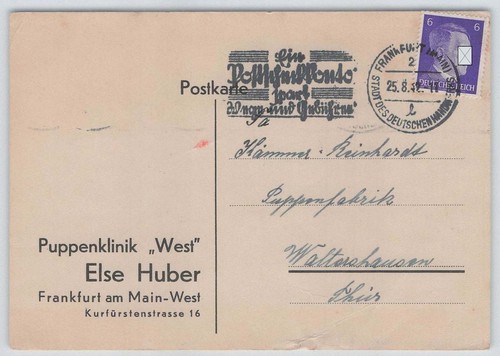 Ein
Postscheckkonto
spart
Wege und Gebühren
Postkarte
FRANKFURT (MAIN)
2
25.8.42.
STADT DES DEUTSCHEN HANDWERKS
l
6 6
DEUTSCHES REICH
Fa
Kämmer-Reinhardt
Puppenfabrik
Waltershausen
Thür
Puppenklinik „West"
Else Huber
Frankfurt am Main-West
Kurfürstenstrasse 16